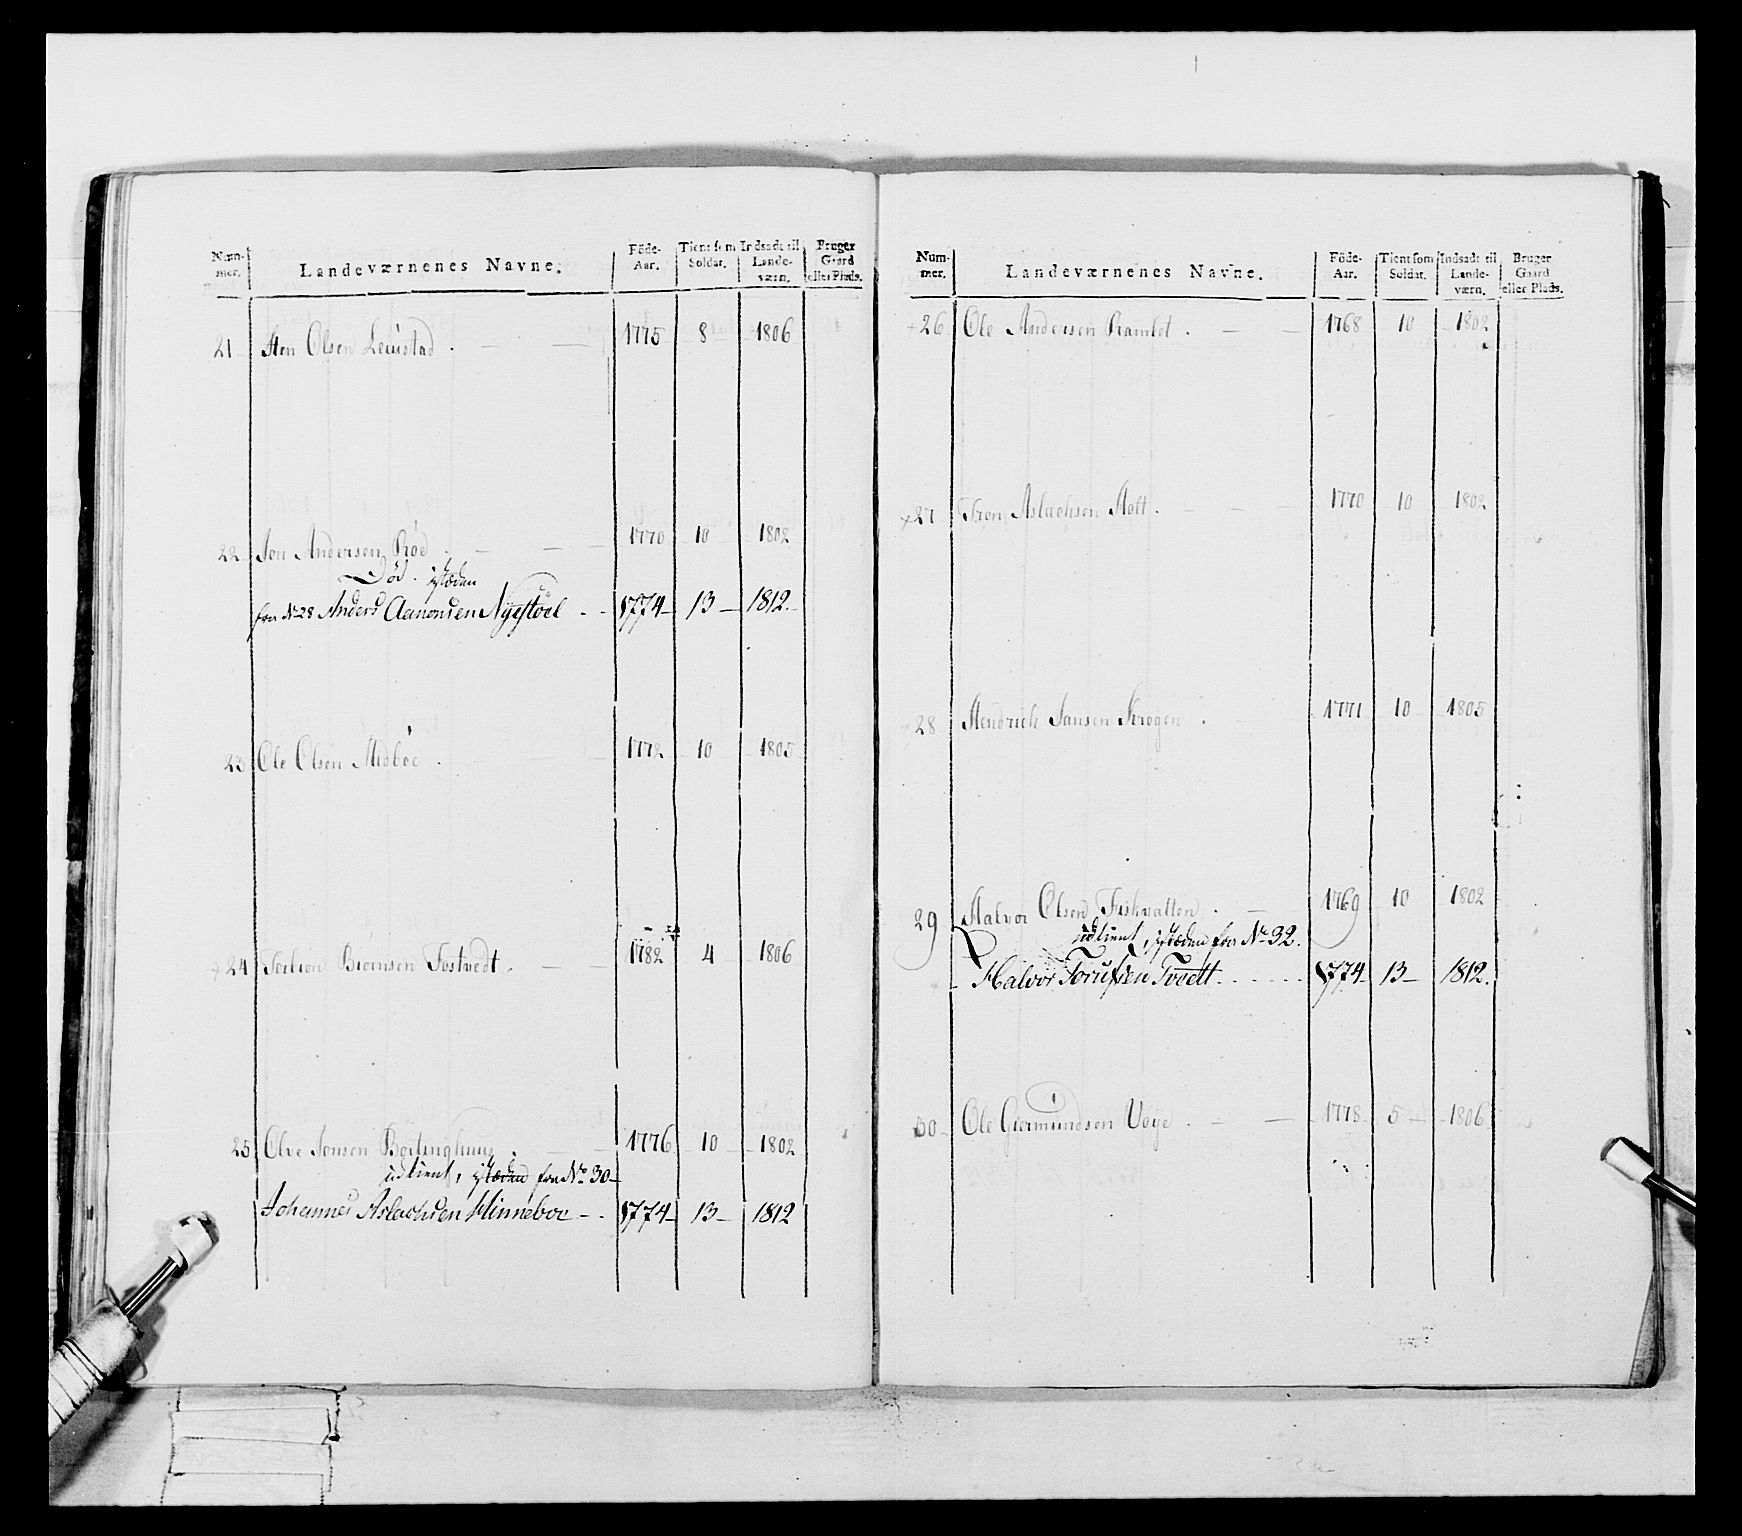 Num-
mer.
Landeværnenes Navne.
Föde-
Aar.
Tient som
Soldat.
Indsadt til
Lande-
værn.
Bruger
Gaard
eller Plads.
21 Olsen 1775 8 1806
22 Jon Andersen Röe 1770 10 1802
Död. istæden
fra No 28 Anders Aanonsen Nystöel 1774 13 1812
23 Ole Olsen Midböe 1772 10 1805
24 Fostvedt 1782 4 1806
25 Olve Jonsen 1776 10 1802
udtient, istæden fra No 30
Johannes Aslachsen Hinneboe 1774 13 1812
Num-
mer.
Landeværnenes Navne.
Föde-
Aar.
Tient som
Soldat.
Indsadt til
Lande-
værn.
Bruger
Gaard
eller Plads.
26 Ole Andersen Ramlet 1768 10 1802
27 Aslachsen 1770 10 1802
28 Hendrich Jansen Krogen 1771 10 1805
29 Halvor Olsen Fiskvatten 1769 10 1802
udtient, istæden fra No 32.
Halvor Tvedt 1774 13 1812.
30 Ole Giermundsen Veye 1778 5 1806